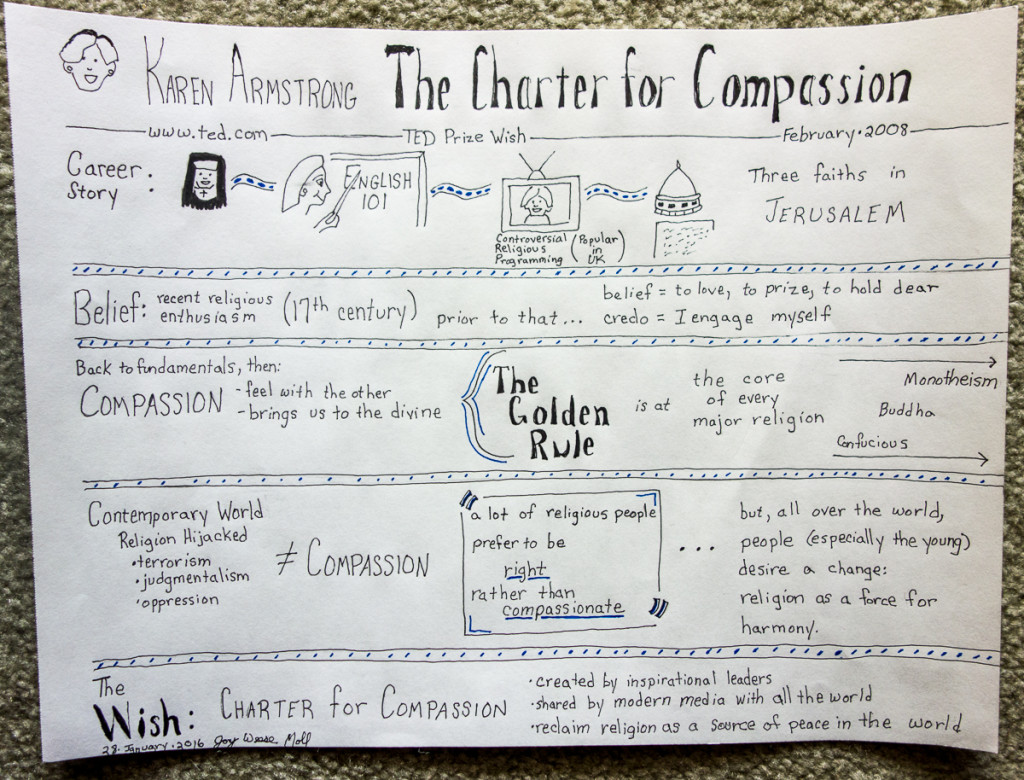 KAREN ARMSTRONG The Charter for Compassion
www.ted.com TED Prize Wish February·2008
Career Story:
ENGLISH
101
Controversial
Religious
Programming
(Popular
in
UK)
Three faiths in
JERUSALEM
Belief: recent religious
enthusiasm
(17th century)
prior to that...
belief = to love, to prize, to hold dear
credo = I engage myself
Back to fundamentals, then:
COMPASSION
- feel with the other
- brings us to the divine
The
Golden
Rule
is at
the core
of every
major religion
Monotheism
Buddha
Confucious
Contemporary World
Religion Hijacked
• terrorism
• judgmentalism
• oppression
≠ COMPASSION
"a lot of religious people
prefer to be
right
rather than
compassionate"
...
but, all over the world,
people (especially the young)
desire a change:
religion as a force for
harmony.
The
Wish:
CHARTER for COMPASSION
• created by inspirational leaders
• shared by modern media with all the world
• reclaim religion as a source of peace in the world
28·January·2016 Joy Weese Moll